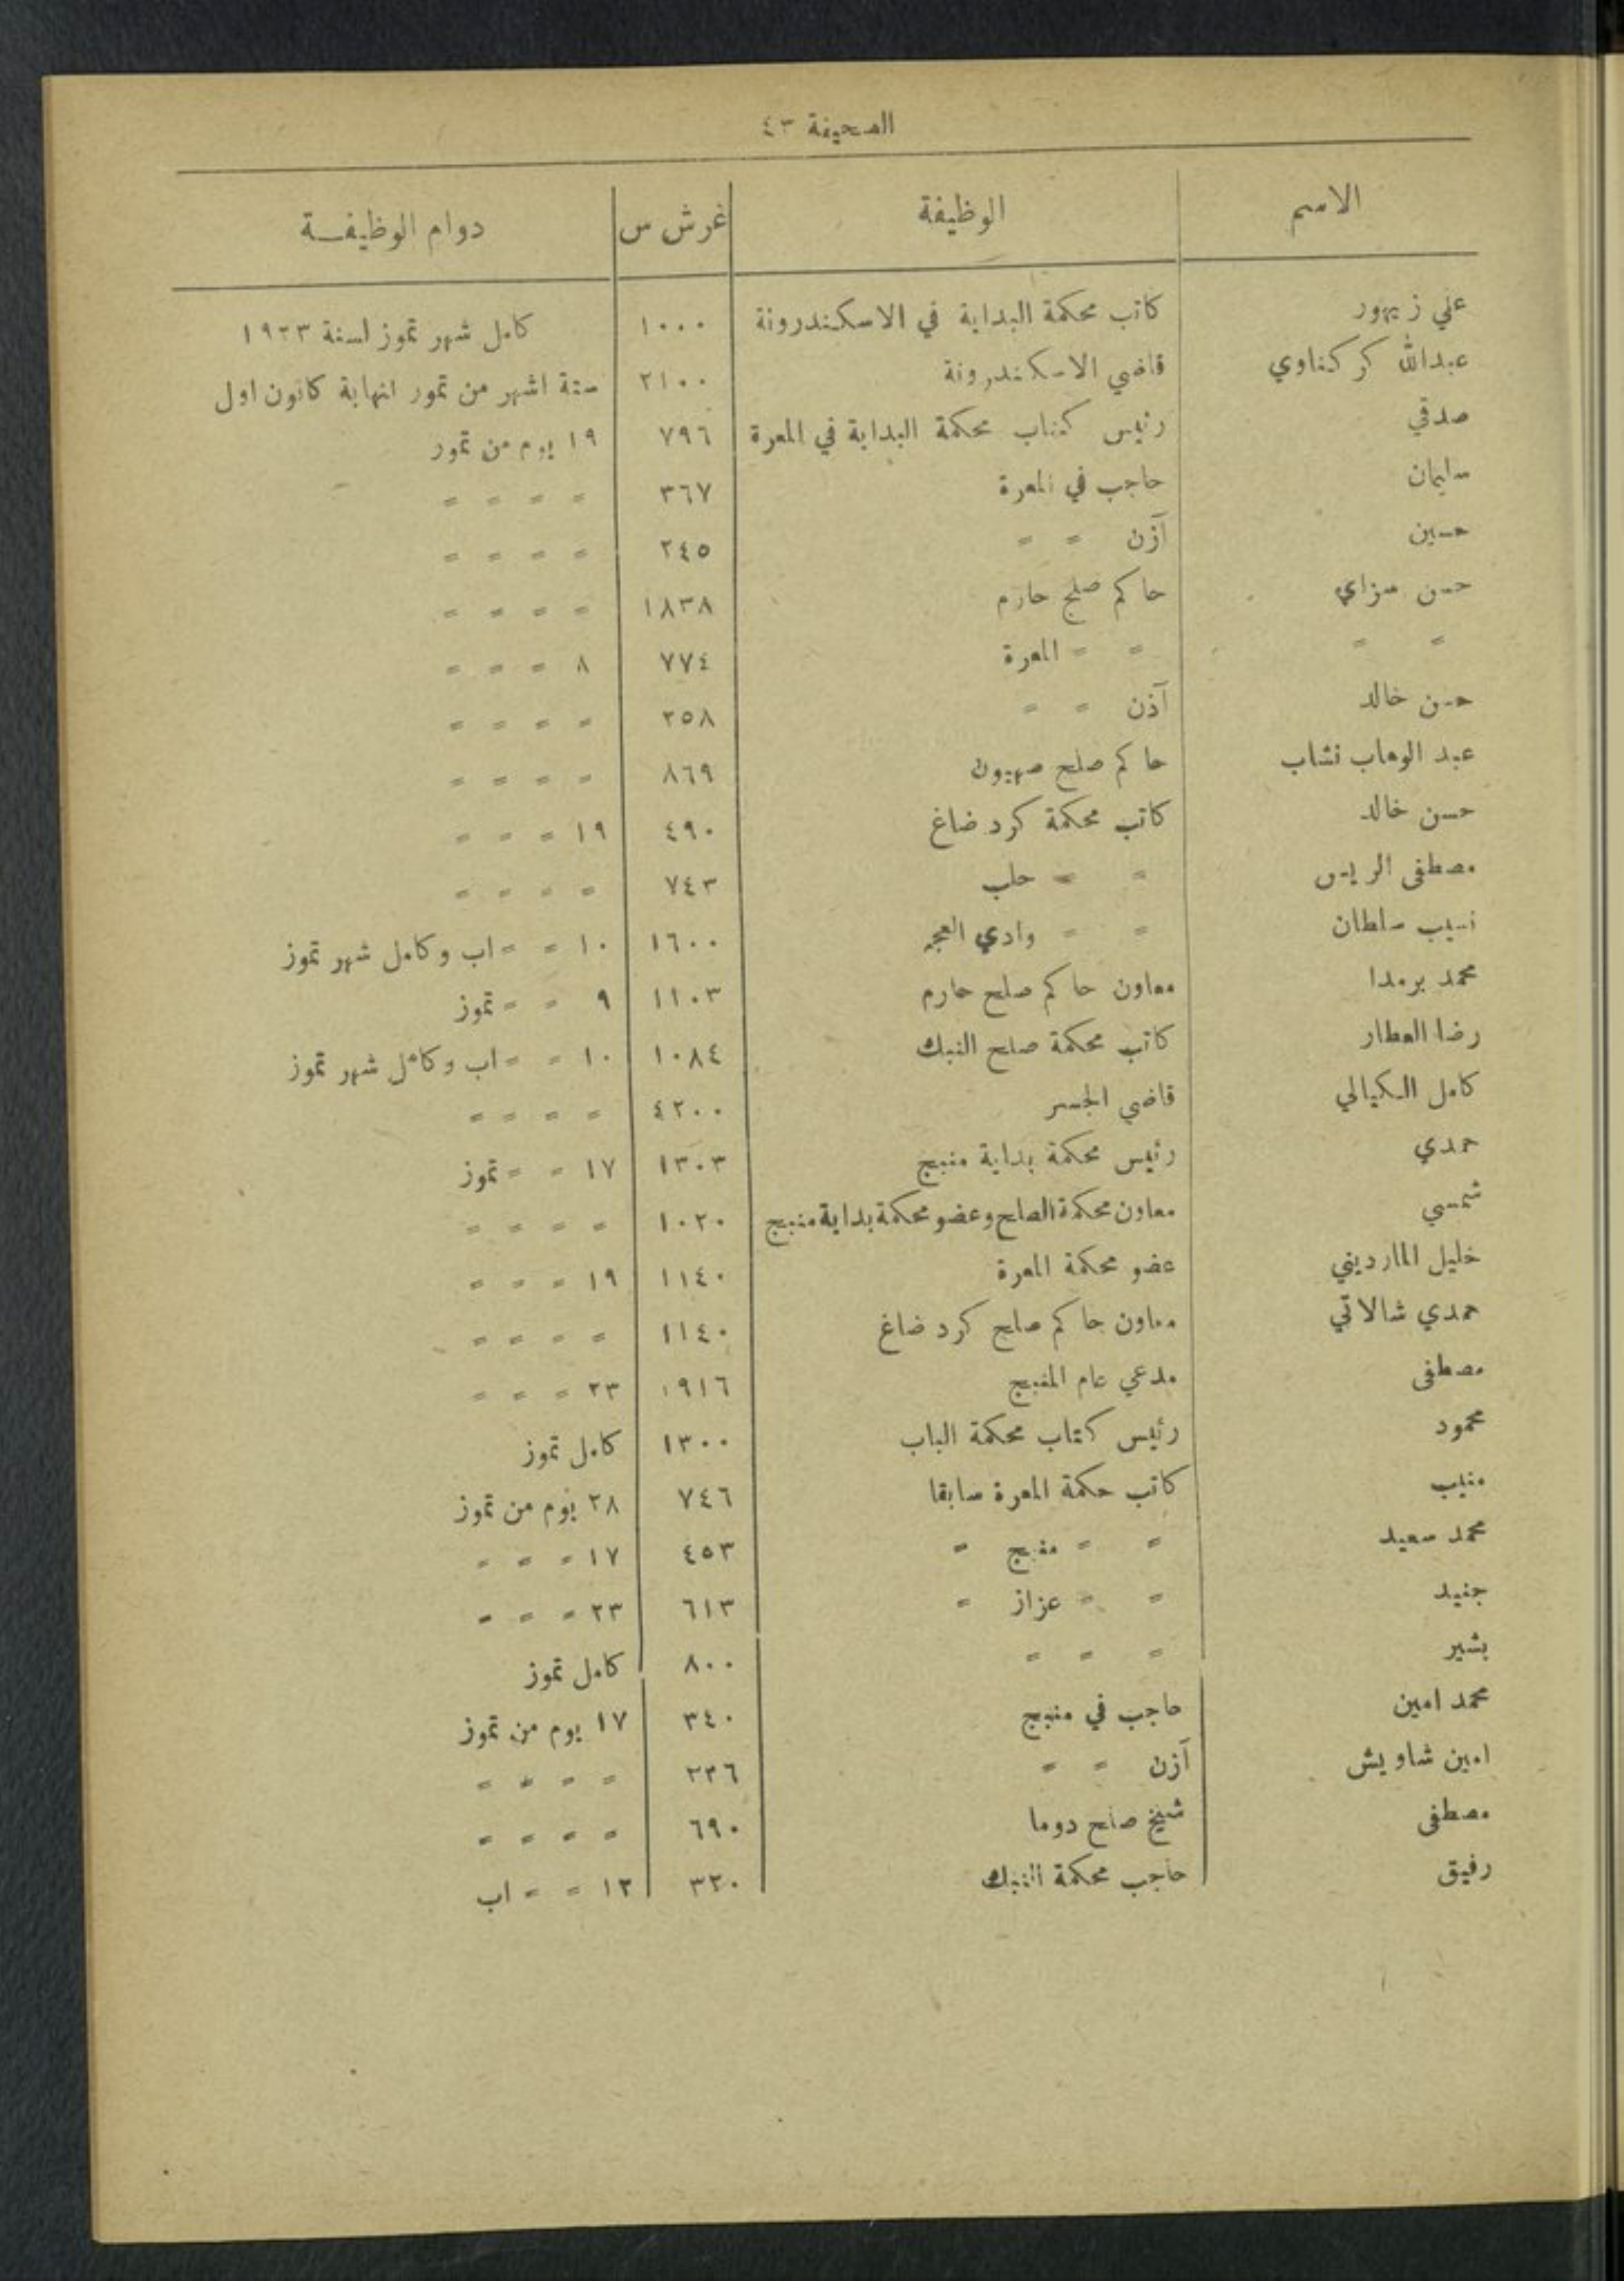 الصحيفة ٤٣
الاسم الوظيفة غرش س دوام الوظيفة
علي زيهور كاتب محكمة البداية في الاسكندرونة ١٠٠٠ كامل شهر تموز لسنة ١٩٢٣
عبدالله كركناوي قاضي الاسكندرونة ٢١٠٠ ستة اشهر من تمور انهاية كانون اول
صدقي رئيس كتاب محكمة البداية في المعرة ٧٩٦ ١٩ يوم من تمور
سليمان حاجب في المعرة ٣٦٧ = = = =
حسين آزن = = ٢٤٥ = = = =
حسن سزاي حاكم صلح حارم ١٨٣٨ = = = =
= = = = المعرة ٧٧٤ ٨ = = =
حسن خالد آذن = = ٢٥٨ = = = =
عبد الوهاب نشاب حاكم صلح صهيون ٨٦٩ = = = =
حسن خالد كاتب محكمة كرد ضاغ ٤٩٠ ١٩ = = =
مصطفى الريس = = حلب ٧٤٣ = = = =
نسيب سلطان = = وادي العجم ١٦٠٠ ١٠ = = اب وكامل شهر تموز
محمد برمدا معاون حاكم صلح حارم ١١٠٣ ٩ = = تموز
رضا العطار كاتب محكمة صلح النبك ١٠٨٤ ١٠ = = اب وكامل شهر تموز
كامل الكيالي قاضي الجسر ٤٢٠٠ = = = =
حمدي رئيس محكمة بداية منبج ١٣٠٣ ١٧ = = تموز
شمسي معاون محكمة الصلح وعضو محكمة بداية منبج ١٠٢٠ = = = =
خليل المارديني عضو محكمة المعرة ١١٤٠ ١٩ = = =
حمدي شالاتي معاون حاكم صلح كرد ضاغ ١١٤٠ = = = =
مصطفى مدعي عام المنبج ١٩١٦ ٢٣ = = =
محمود رئيس كتاب محكمة الباب ١٣٠٠ كامل تموز
منيب كاتب حكمة المعرة سابقا ٧٤٦ ٢٨ يوم من تموز
محمد سعيد = = منبج = ٤٥٣ ١٧ = = =
جنيد = = عزاز = ٦١٣ ٢٣ = = =
بشير = = = ٨٠٠ كامل تموز
محمد امين حاجب في منبج ٣٤٠ ١٧ يوم من تموز
امين شاويش آزن = = ٢٢٦ = = = =
مصطفى شيخ صلح دوما ٦٩٠ = = = =
رفيق حاجب محكمة النبك ٣٢٠ ١٢ = = اب